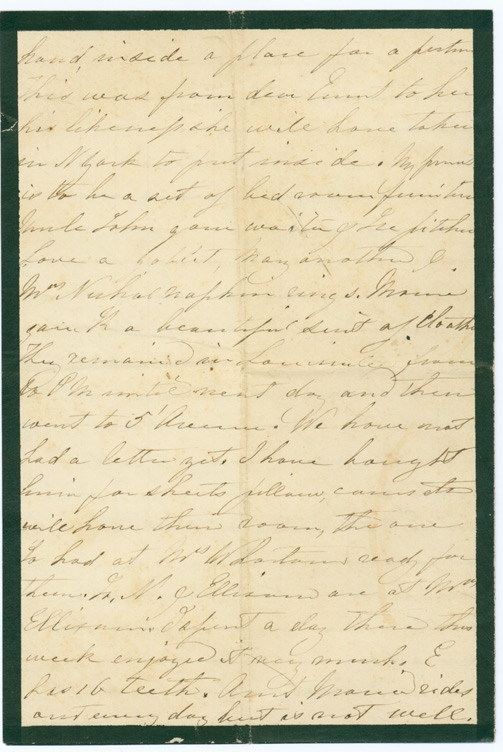 hand, inside a place for a picture
This was from dear Emmt to her
his likeness she will have taken
in N York to put inside. My present
is to be a set of bed room furniture
Uncle John gave waiter & Ice pitcher
Love a goblet, Mary another &
Mrs Nichol napkin rings. Mamie
gave K a beautiful suit of cloaths
They remained in Louisville from
P M until next day and then
went to 5 Avenue. We have not
had a letter yet. I have bought
linen for sheets pillow cases &c
will have their room, the one
had at Mrs ready for
them. N. & Ellison are at Mrs
Ellison's. I spent a day there this
week enjoyed it very much, E
has 16 teeth. Aunt Maria rides
out every day but is not well.